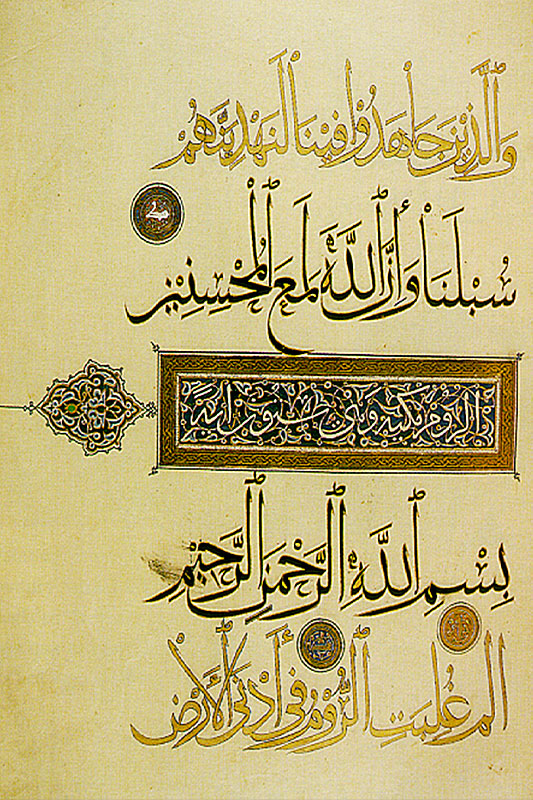 وَالَّذِينَ جَاهَدُوا فِينَا لَنَهْدِيَنَّهُمْ
سُبُلَنَا وَإِنَّ اللَّهَ لَمَعَ الْمُحْسِنِينَ
سورة الروم مكية وهي ستون آية
بِسْمِ اللَّهِ الرَّحْمَنِ الرَّحِيمِ
الم غُلِبَتِ الرُّومُ فِي أَدْنَى الْأَرْضِ